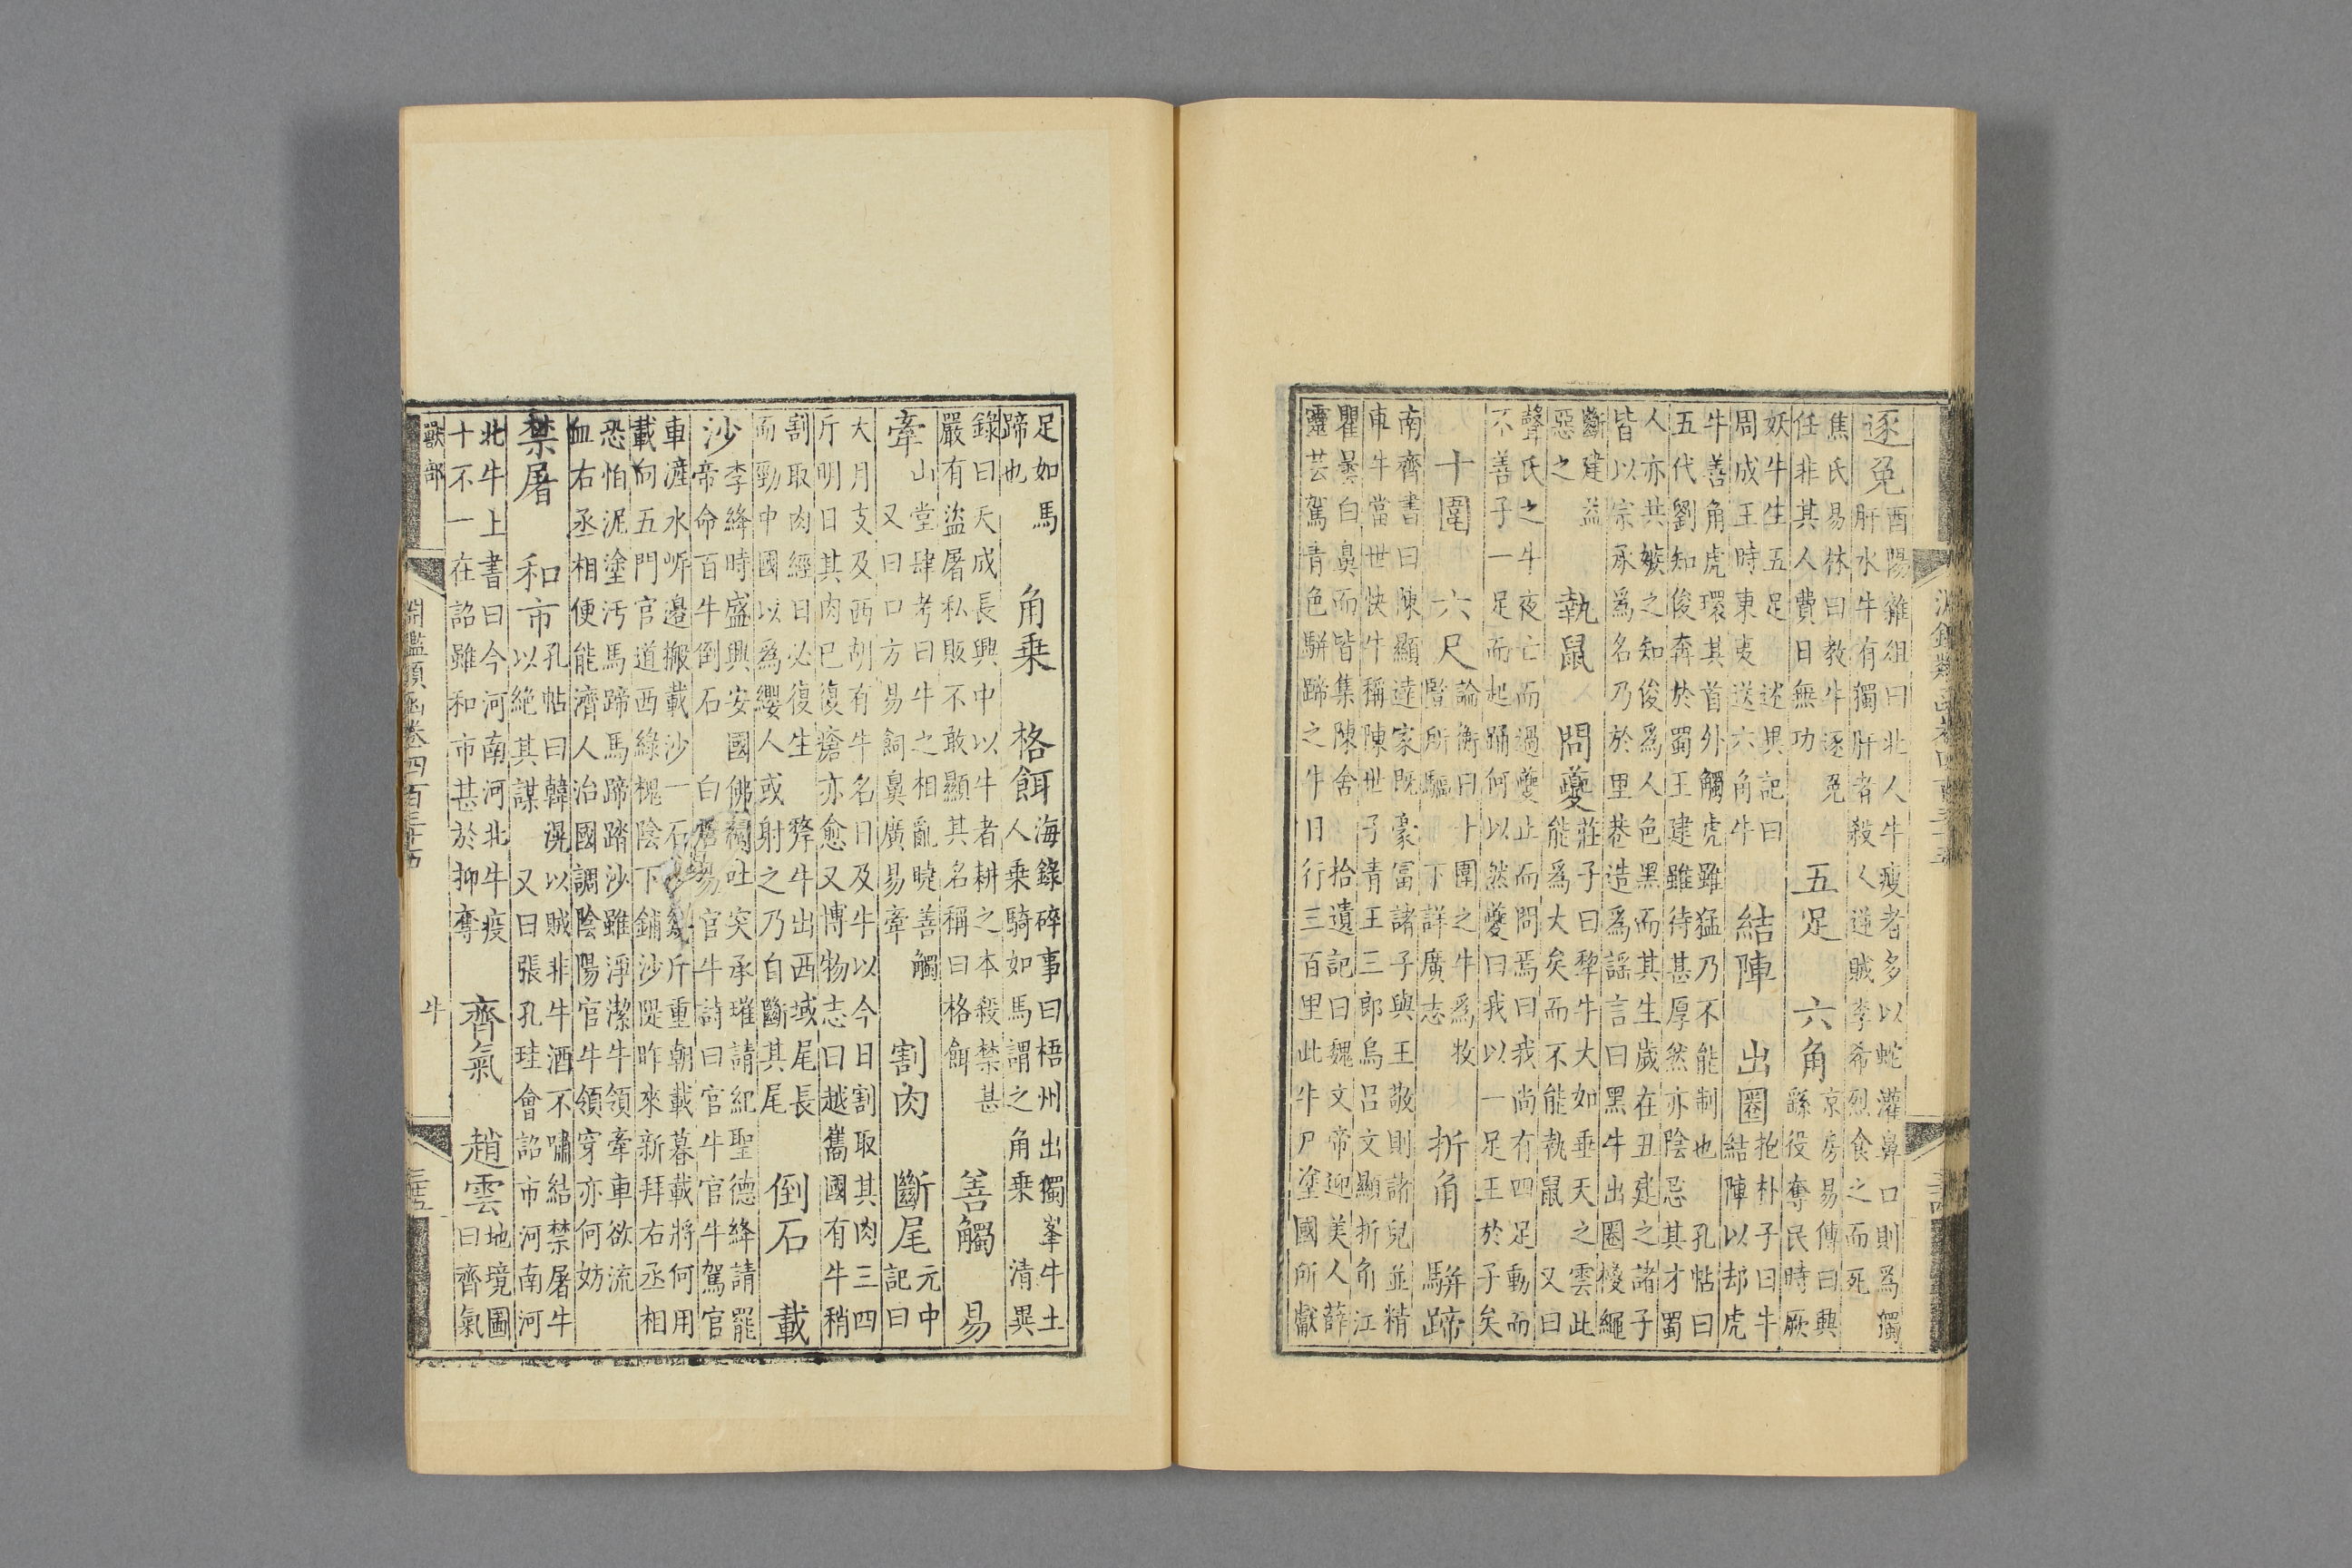 逐兔
酉陽雜俎曰北人牛瘦者多以蛇灌鼻口則為獨
肝水牛有獨肝者殺人逆賊李希烈食之而死
焦氏易林曰教牛逐兔
任非其人費日無功
五足 六角
京房易傳曰興
繇役奪民時厥
妖牛生五足 述異記曰
周成王時東夷送六角牛
結陣 出圈
抱朴子曰牛
結陣以却虎
牛善角虎環其首外觸虎雖猛乃不能制也 孔帖曰
五代劉知俊奔於蜀王建雖待甚厚然亦陰忌其才蜀
人亦共嫉之知俊為人色黑而其生歲在丑建之諸子
皆以宗承為名乃於里巷造為謠言曰黑牛出圈椶繩
斷建益
惡之
執鼠 問夔
莊子曰犂牛大如垂天之雲此
能為大矣而不能執鼠 又曰
聲氏之牛夜亡而過夔止而問焉曰我尚有四足動而
不善子一足而起踊何以然夔曰我以一足王於子矣
十圍 六尺
論衡曰十圍之牛為牧
豎所驅 下詳廣志
折角 駢蹄
南齊書曰陳顯達家既豪富諸子與王敬則諸兒並精
車牛當世快牛稱陳世子青王三郎烏呂文顯折角江
瞿曇白鼻而皆集陳舍 拾遺記曰魏文帝迎美人薛
靈芸駕青色駢蹄之牛日行三百里此牛尸塗國所獻
足如馬
蹄也
角乗 格餌
海錄碎事曰梧州出獨峯牛土
人乗騎如馬謂之角乗 清異
錄曰天成長興中以牛者耕之本殺禁甚
嚴有盜屠私販不敢顯其名稱曰格餌
善觸 易
牽
山堂肆考曰牛之相亂睫善觸
又曰口方易飼鼻廣易牽
割肉 斷尾
元中
記曰
大月支及西胡有牛名日及牛以今日割取其肉三四
斤明日其肉已復瘡亦愈 又博物志曰越嶲國有牛稍
割取肉經日必復生 㸹牛出西域尾長
而勁中國以為纓人或射之乃自斷其尾
倒石 載
沙
李絳時盛興安國佛祠吐突承璀請紀聖德絳請罷
帝命百牛倒石 白居易官牛詩曰官牛官牛駕官
車滻水岍邊搬載沙一石沙幾斤重朝載暮載將何用
載向五門官道西綠槐陰下鋪沙隄昨來新拜右丞相
恐怕泥塗汚馬蹄馬蹄踏沙雖淨潔牛領牽車欲流
血右丞相便能濟人治國調陰陽官牛領穿亦何妨
禁屠 和市
孔帖曰韓滉以賊非牛酒不嘯結禁屠牛
以絕其謀 又曰張孔珪會詔市河南河
北牛上書曰今河南河北牛疫
十不一在詔雖和市甚於抑奪
齊氣 趙雲
地境圖
曰齊氣
獸部 牛
淵鑑類函卷四百三十五 三五